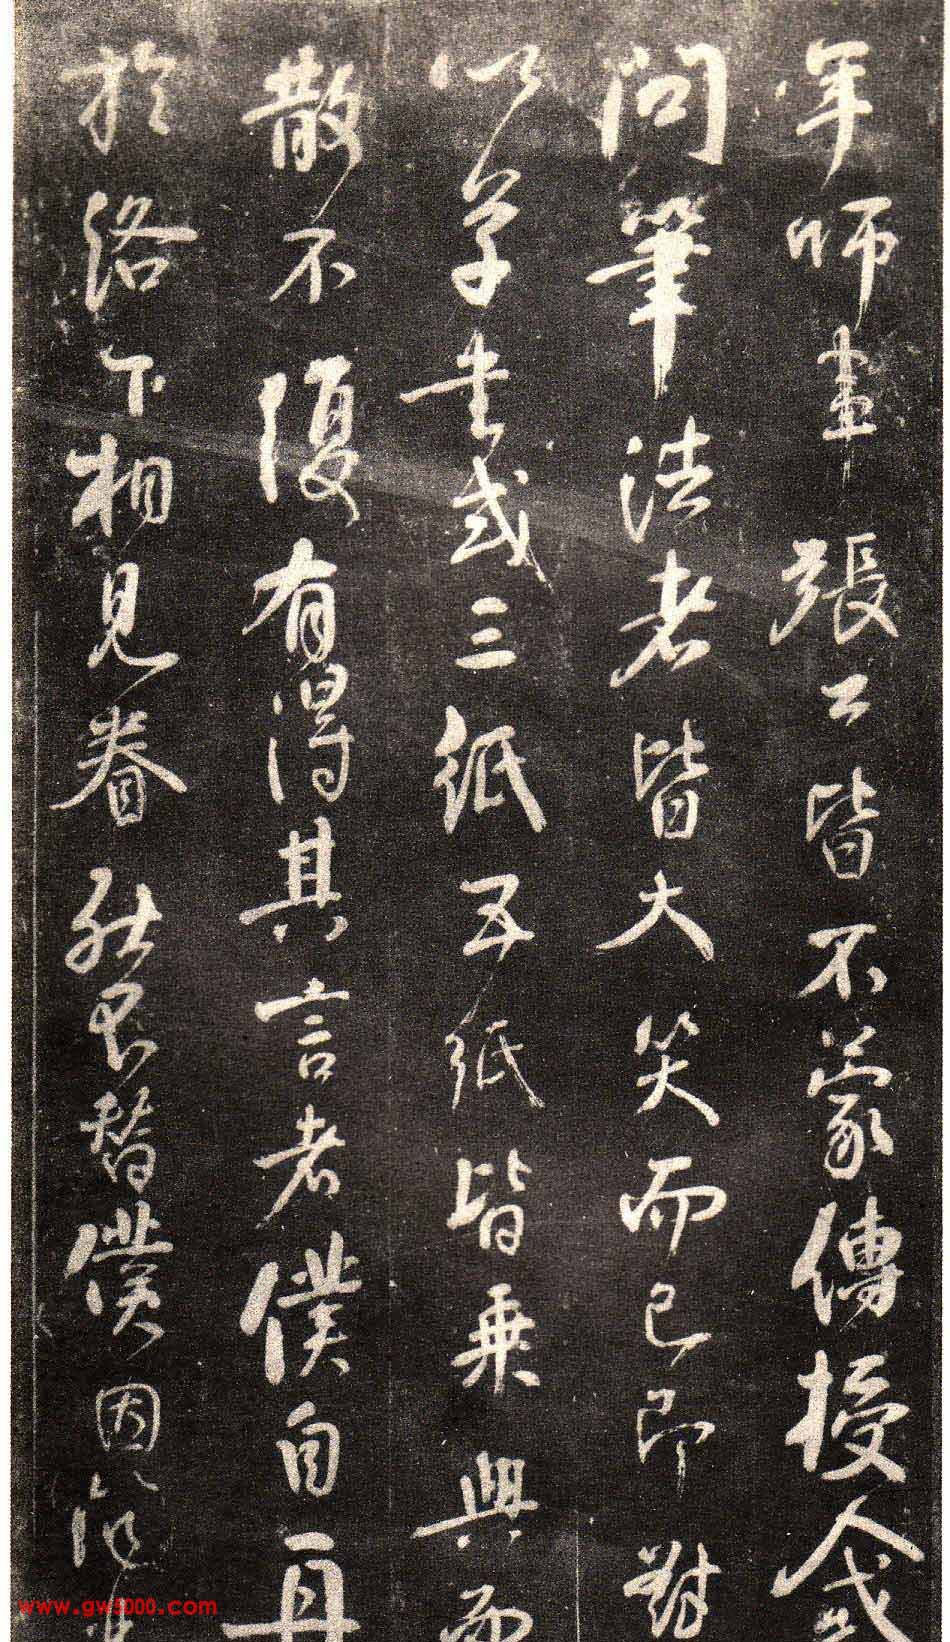 年師盡張公皆不蒙傳授人或
問筆法者皆大笑而已即對
以草書或三紙五紙皆乘興而
散不復有得其言者僕自再
於洛下相見眷然不替僕因
www.gw5000.com